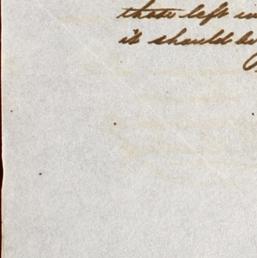 those left
it should be